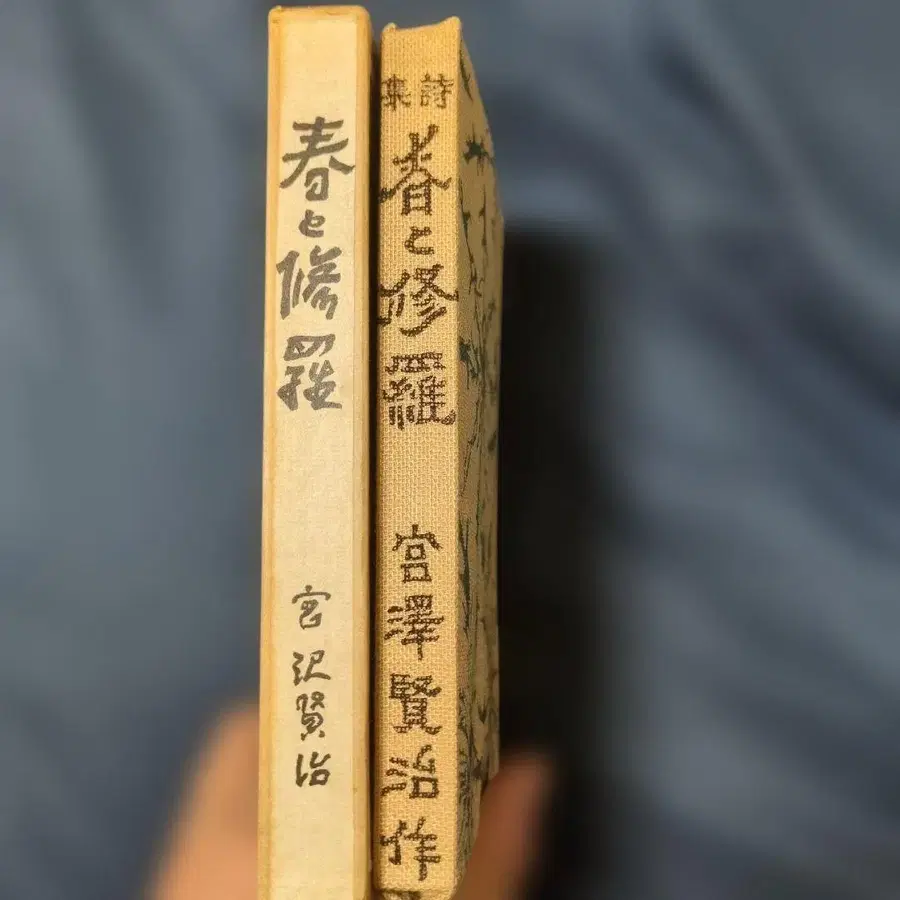 春と修羅
宮沢賢治
詩集
春と修羅
宮澤賢治作